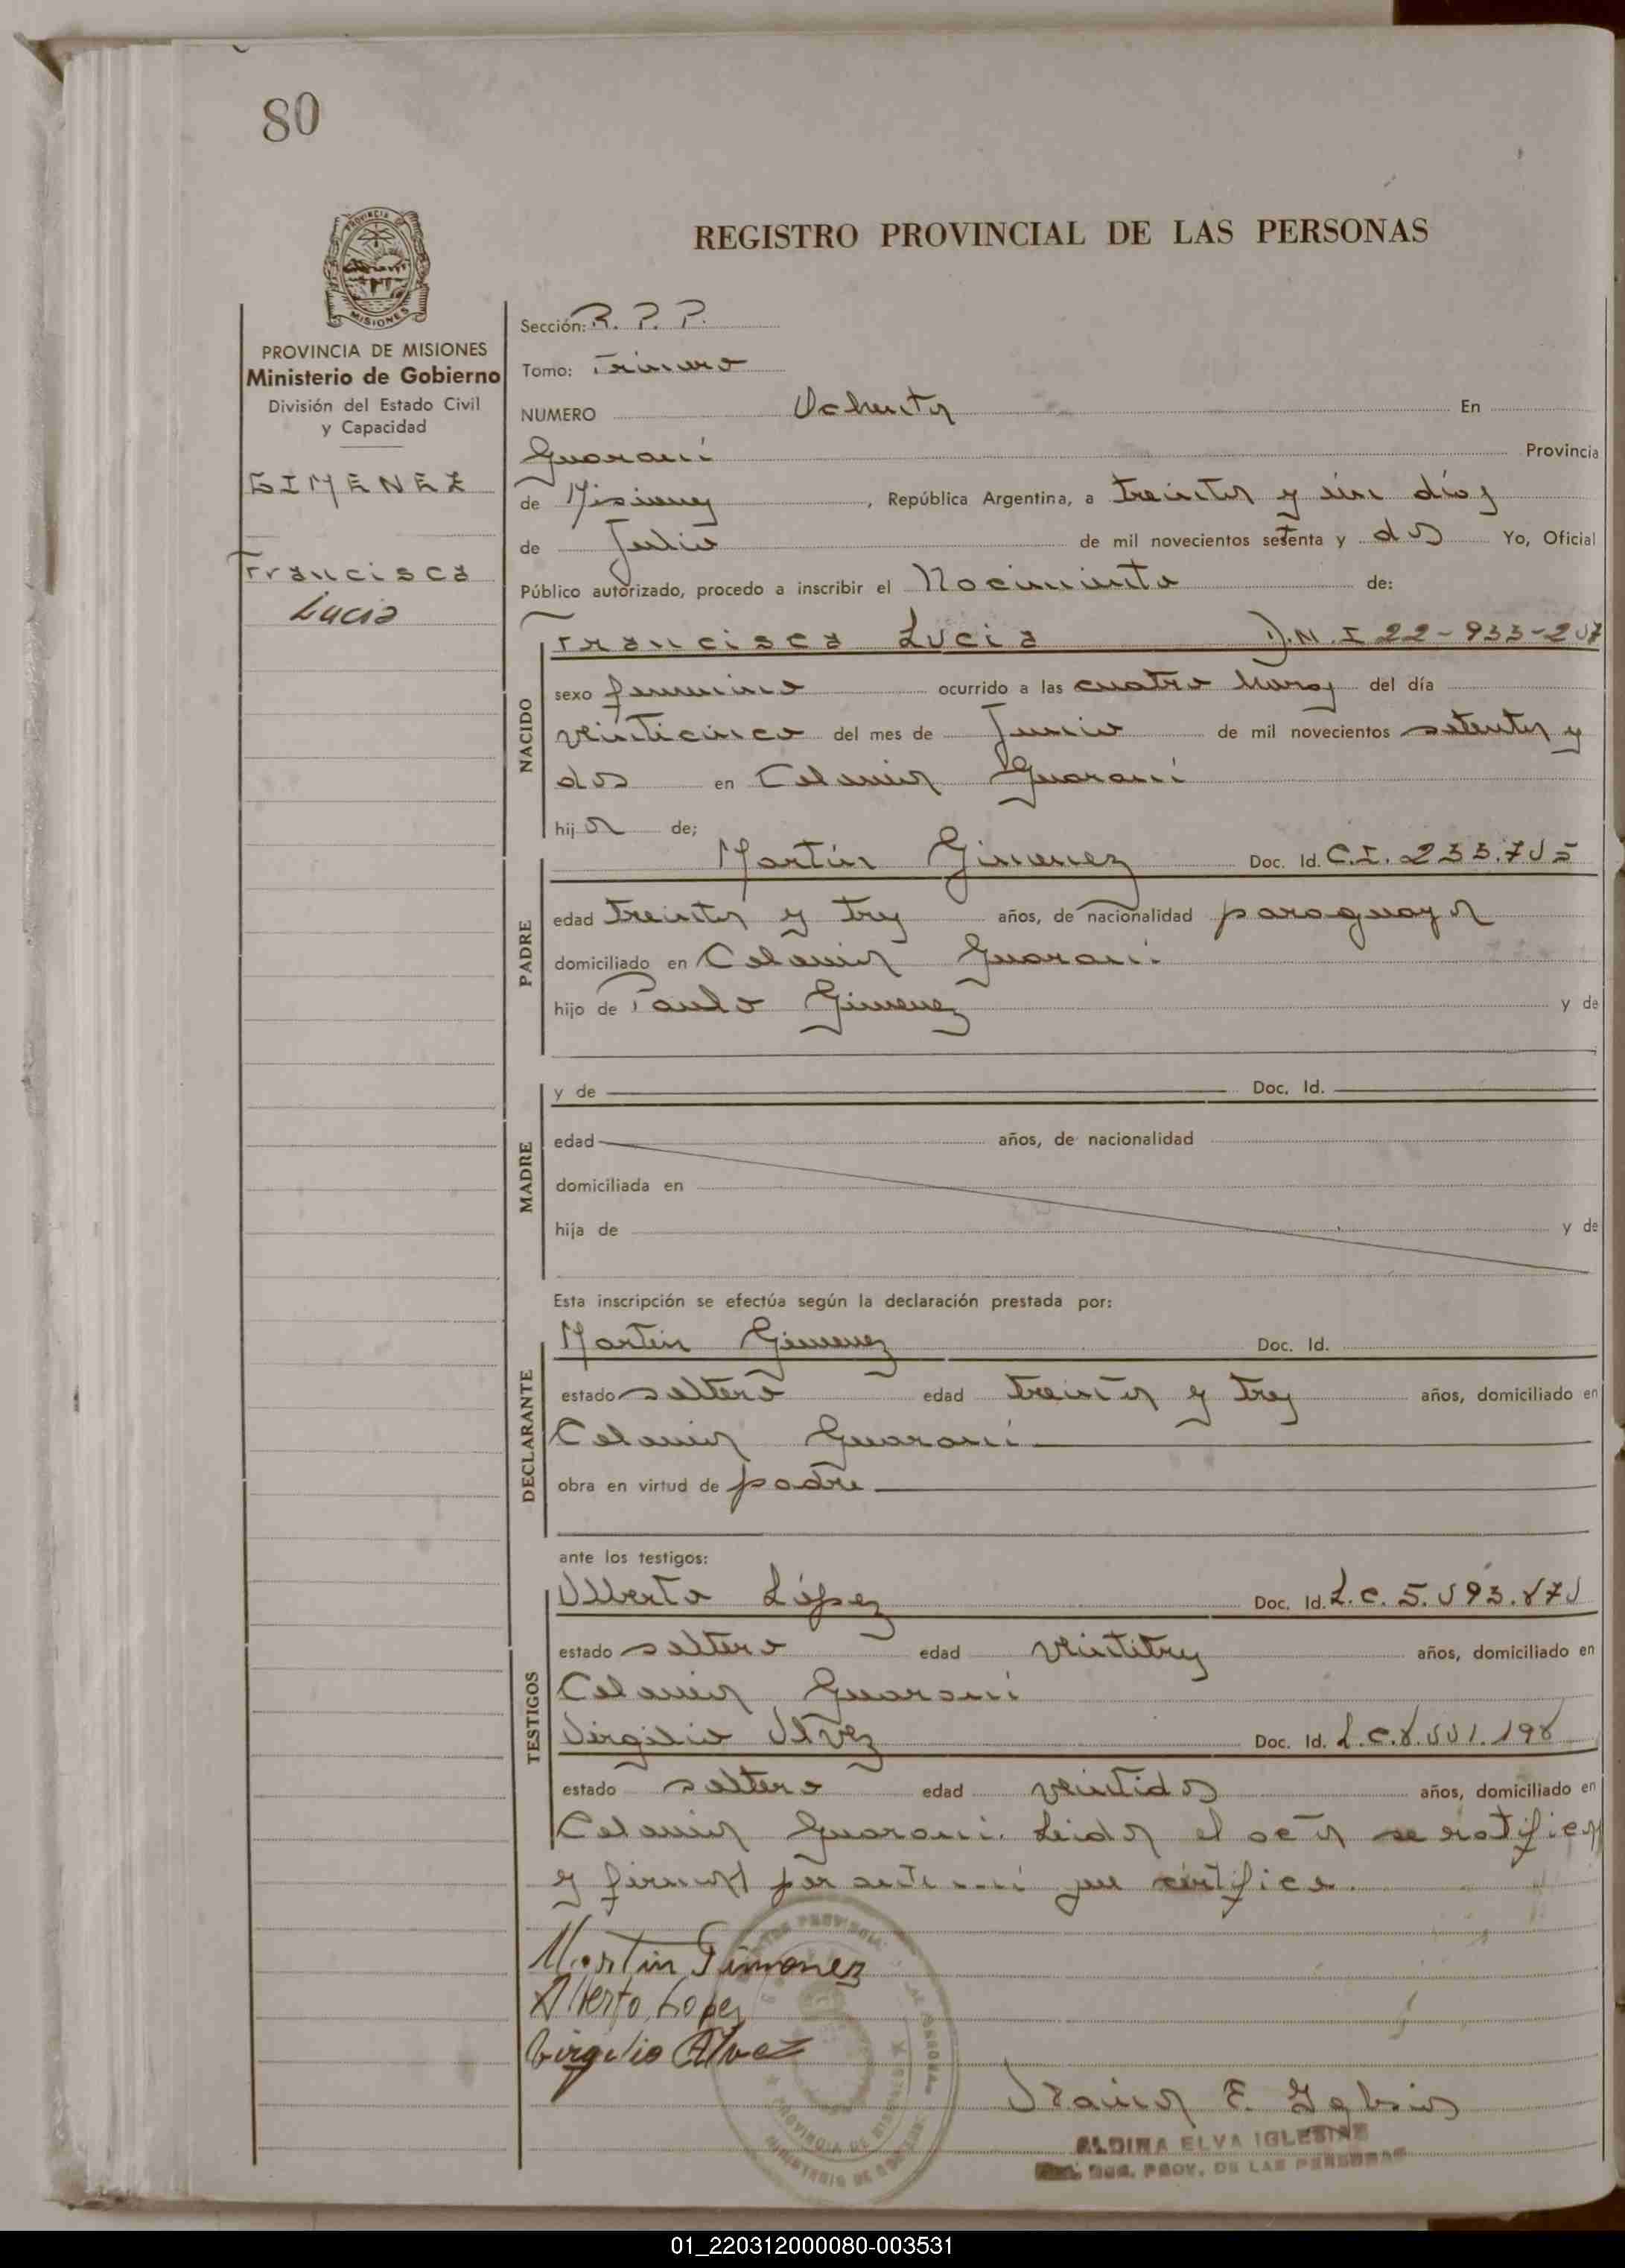 80
REGISTRO PROVINCIAL DE LAS PERSONAS
PROVINCIA DE MISIONES
Ministerio de Gobierno
División del Estado Civil
y Capacidad
GIMENEZ
Francisca
Lucia
Sección: R. P. P.
Tomo: Primero
NUMERO Ochenta En
Guaraní Provincia
de Misiones, República Argentina, a treinta y un días
de Julio de mil novecientos setenta y dos Yo, Oficial
Público autorizado, procedo a inscribir el Nacimiento de:
NACIDO
Francisca Lucia D.N.I 22-933-207
sexo femenino ocurrido a las cuatro horas del día
veinticinco del mes de Junio de mil novecientos setenta y
dos en Colonia Guaraní
hija de;
PADRE
Martín Gimenez Doc. Id. C.I. 233.705
edad treinta y tres años, de nacionalidad paraguaya
domiciliado en Colonia Guaraní
hijo de Paulo Gimenez y de
MADRE
y de Doc. Id.
edad años, de nacionalidad
domiciliada en
hija de y de
Esta inscripción se efectúa según la declaración prestada por:
DECLARANTE
Martín Gimenez Doc. Id.
estado soltero edad treinta y tres años, domiciliado en
Colonia Guaraní
obra en virtud de padre
ante los testigos:
TESTIGOS
Alberto López Doc. Id. L.C. 5.093.870
estado soltero edad veintitres años, domiciliado en
Colonia Guaraní
Virgilio Alvez Doc. Id. L.C. 8.001.198
estado soltero edad veintidos años, domiciliado en
Colonia Guaraní. Leida el acta se ratifica
y firman por ante mi que certifico.
Martin Gimenez
Alberto Lopez
Virgilio Alvez
E. Iglesias
ALDINA ELVA IGLESIAS
PROV. DE LAS PERSONAS
PROVINCIA DE MISIONES
MINISTERIO DE GOBIERNO
01_220312000080-003531